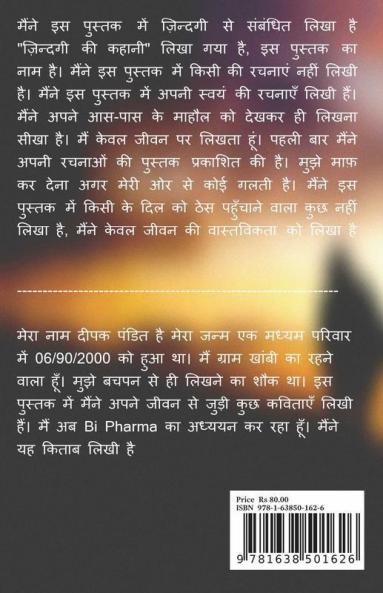 मैंने इस पुस्तक में ज़िन्दगी से संबंधित लिखा है
"ज़िन्दगी की कहानी" लिखा गया है, इस पुस्तक का
नाम है। मैंने इस पुस्तक में किसी की रचनाएं नहीं लिखी
है। मैंने इस पुस्तक में अपनी स्वयं की रचनाएँ लिखी हैं।
मैंने अपने आस-पास के माहौल को देखकर ही लिखना
सीखा है। मैं केवल जीवन पर लिखता हूं। पहली बार मैंने
अपनी रचनाओं की पुस्तक प्रकाशित की है। मुझे माफ़
कर देना अगर मेरी ओर से कोई गलती है। मैंने इस
पुस्तक में किसी के दिल को ठेस पहुँचाने वाला कुछ नहीं
लिखा है, मैंने केवल जीवन की वास्तविकता को लिखा है
--------------------------------------------------
मेरा नाम दीपक पंडित है मेरा जन्म एक मध्यम परिवार
में 06/90/2000 को हुआ था। मैं ग्राम खांबी का रहने
वाला हूँ। मुझे बचपन से ही लिखने का शौक था। इस
पुस्तक में मैंने अपने जीवन से जुड़ी कुछ कविताएँ लिखी
हैं। मैं अब Bi Pharma का अध्ययन कर रहा हूँ। मैंने
यह किताब लिखी है
Price Rs 80.00
ISBN 978-1-63850-162-6
9 781638 501626